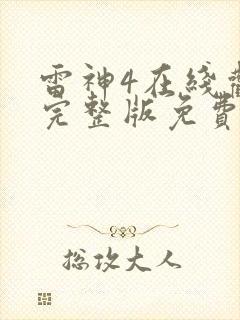 雷神4在綫觀
完整版免費
总攻大人